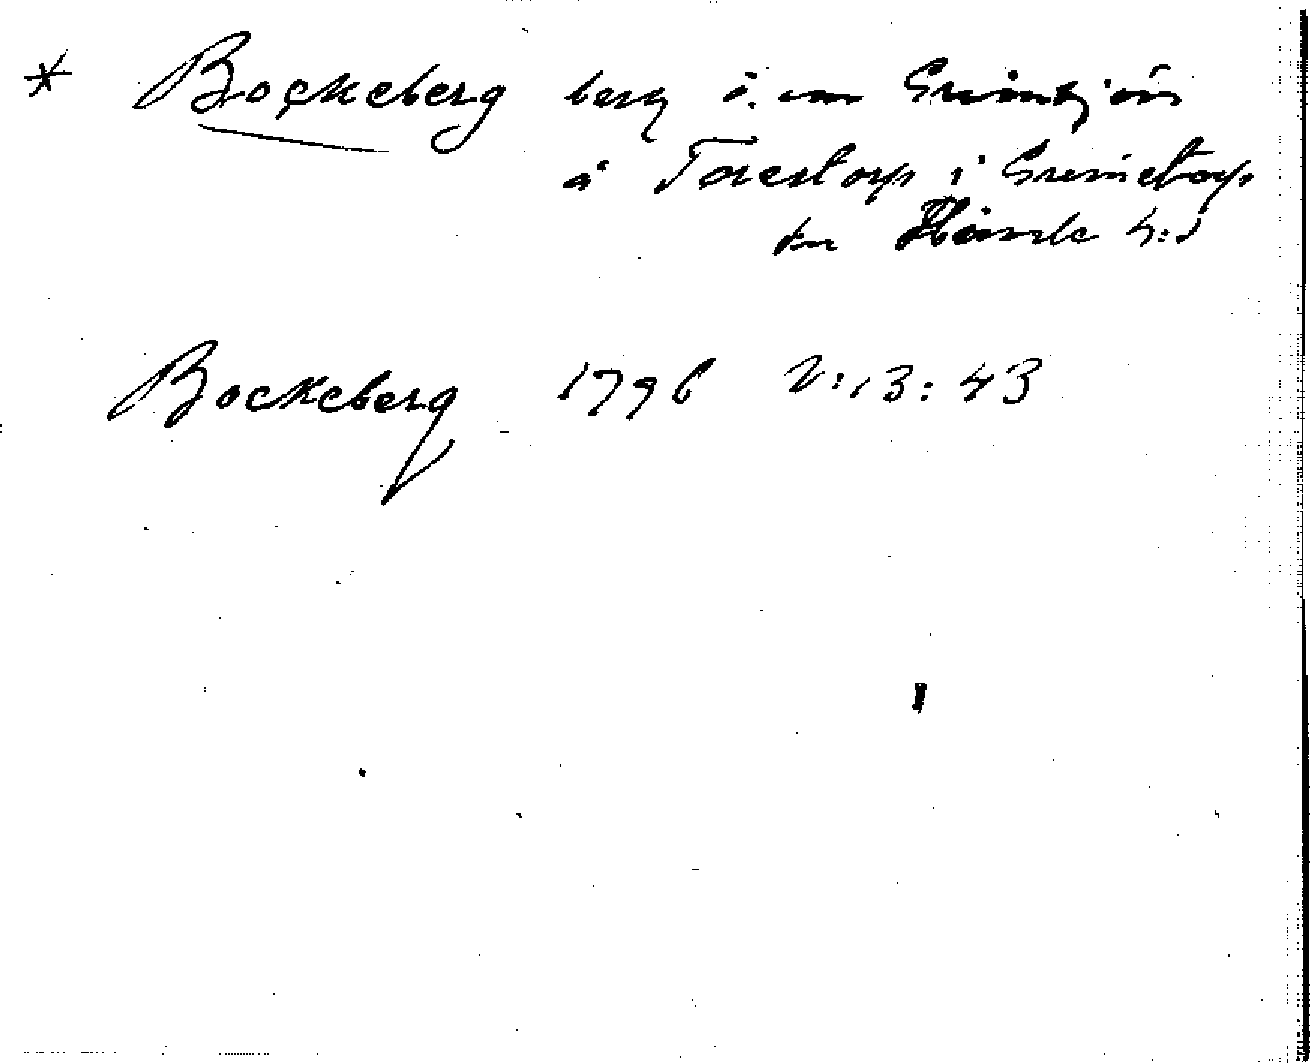 * Bockeberg berg ö. om Grimsjön
å Torestorp i Grimetorp
sn Flärde h:d
Bockeberg 1796 V:13:43